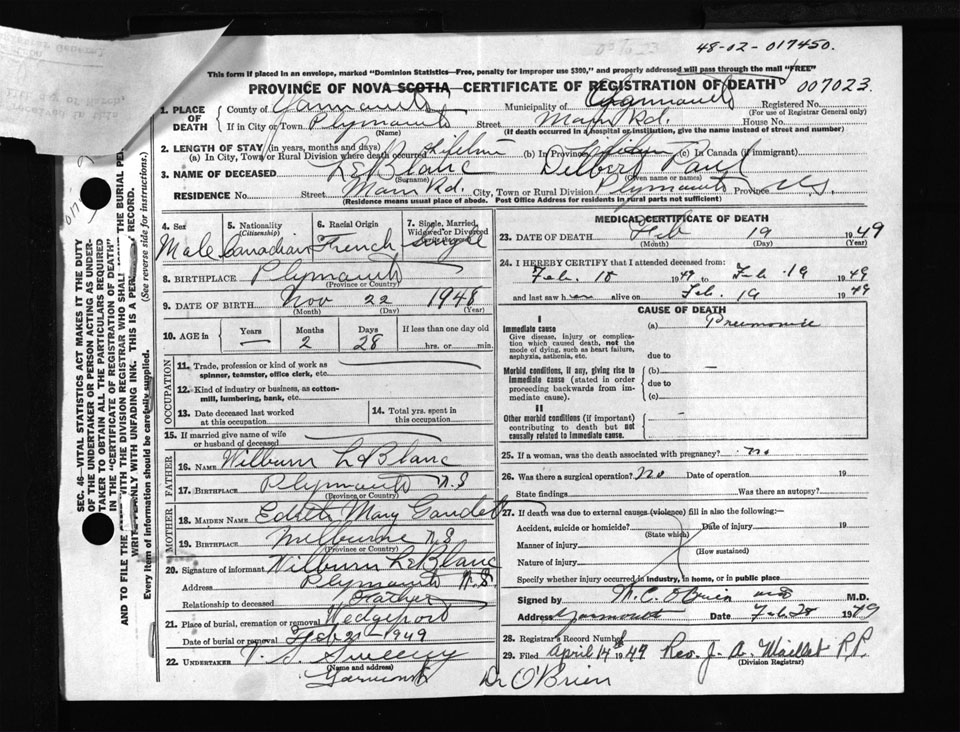 48-02-017450.
This form if placed in an envelope, marked "Dominion Statistics—Free, penalty for improper use $300," and properly addressed will pass through the mail "FREE"
PROVINCE OF NOVA SCOTIA—CERTIFICATE OF REGISTRATION OF DEATH 007023
1. PLACE OF DEATH County of Yarmouth Municipality of Yarmouth Registered No.
(For use of Registrar General only)
If in City or Town Plymouth Street Main Rd. House No.
(Name) (If death occurred in a hospital or institution, give the name instead of street and number)
2. LENGTH OF STAY (in years, months and days)
(a) In City, Town or Rural Division where death occurred Lifetime (b) In Province Lifetime (c) In Canada (if immigrant)
3. NAME OF DECEASED LeBlanc Delbert Paul
(Surname) (Given name or names)
RESIDENCE No. Street Main Rd. City, Town or Rural Division Plymouth Province N.S.
(Residence means usual place of abode. Post Office Address for residents in rural parts not sufficient)
4. Sex 5. Nationality (Citizenship) 6. Racial Origin 7. Single, Married, Widowed or Divorced
Male Canadian French Single
8. BIRTHPLACE Plymouth
(Province or Country)
9. DATE OF BIRTH Nov 22 1948
(Month) (Day) (Year)
10. AGE in Years Months Days If less than one day old
— 2 28 hrs. or min.
OCCUPATION
11. Trade, profession or kind of work as spinner, teamster, office clerk, etc.
12. Kind of industry or business, as cotton-mill, lumbering, bank, etc.
13. Date deceased last worked at this occupation
14. Total yrs. spent in this occupation
15. If married give name of wife or husband of deceased
FATHER
16. NAME Wilburn LeBlanc
17. BIRTHPLACE Plymouth N.S
(Province or Country)
MOTHER
18. MAIDEN NAME Edith Mary Gaudet
19. BIRTHPLACE Melbourne N.S
(Province or Country)
20. Signature of informant Wilburn LeBlanc
Address Plymouth N.S.
Relationship to deceased Father
21. Place of burial, cremation or removal Wedgeport
Date of burial or removal Feb 21-1949
22. UNDERTAKER V. S. Sweeny
(Name and address)
Yarmouth
MEDICAL CERTIFICATE OF DEATH
23. DATE OF DEATH Feb 19 1949
(Month) (Day) (Year)
24. I HEREBY CERTIFY that I attended deceased from:
Feb. 18 1949 to Feb. 19 1949
and last saw h alive on Feb. 19 1949
CAUSE OF DEATH
I
Immediate cause (a) Pneumonia
Give disease, injury or complication which caused death, not the mode of dying, such as heart failure, asphyxia, asthenia, etc.
due to
Morbid conditions, if any, giving rise to immediate cause (stated in order proceeding backwards from immediate cause). (b) —
due to
(c)
II
Other morbid conditions (if important) contributing to death but not causally related to immediate cause.
25. If a woman, was the death associated with pregnancy? no
26. Was there a surgical operation? No Date of operation 19
State findings Was there an autopsy?
27. If death was due to external causes (violence) fill in also the following:—
Accident, suicide or homicide? Date of injury 19
(State which)
Manner of injury
(How sustained)
Nature of injury
Specify whether injury occurred in industry, in home, or in public place
Signed by W. C. O'Brien M.D.
Address Yarmouth Date Feb 28 1949
28. Registrar's Record Number
29. Filed April 14th 1949 Rev. J. A. Maillet P.P.
(Division Registrar)
Dr O'Brien
SEC. 46—VITAL STATISTICS ACT MAKES IT THE DUTY
OF THE UNDERTAKER OR PERSON ACTING AS UNDERTAKER TO OBTAIN ALL THE PARTICULARS REQUIRED
IN THE "CERTIFICATE OF REGISTRATION OF DEATH"
AND TO FILE THE WITH THE DIVISION REGISTRAR WHO SHALL THE BURIAL
WRITE PLAINLY WITH UNFADING INK. THIS IS A RECORD.
Every item of information should be carefully supplied. (See reverse side for instructions.)